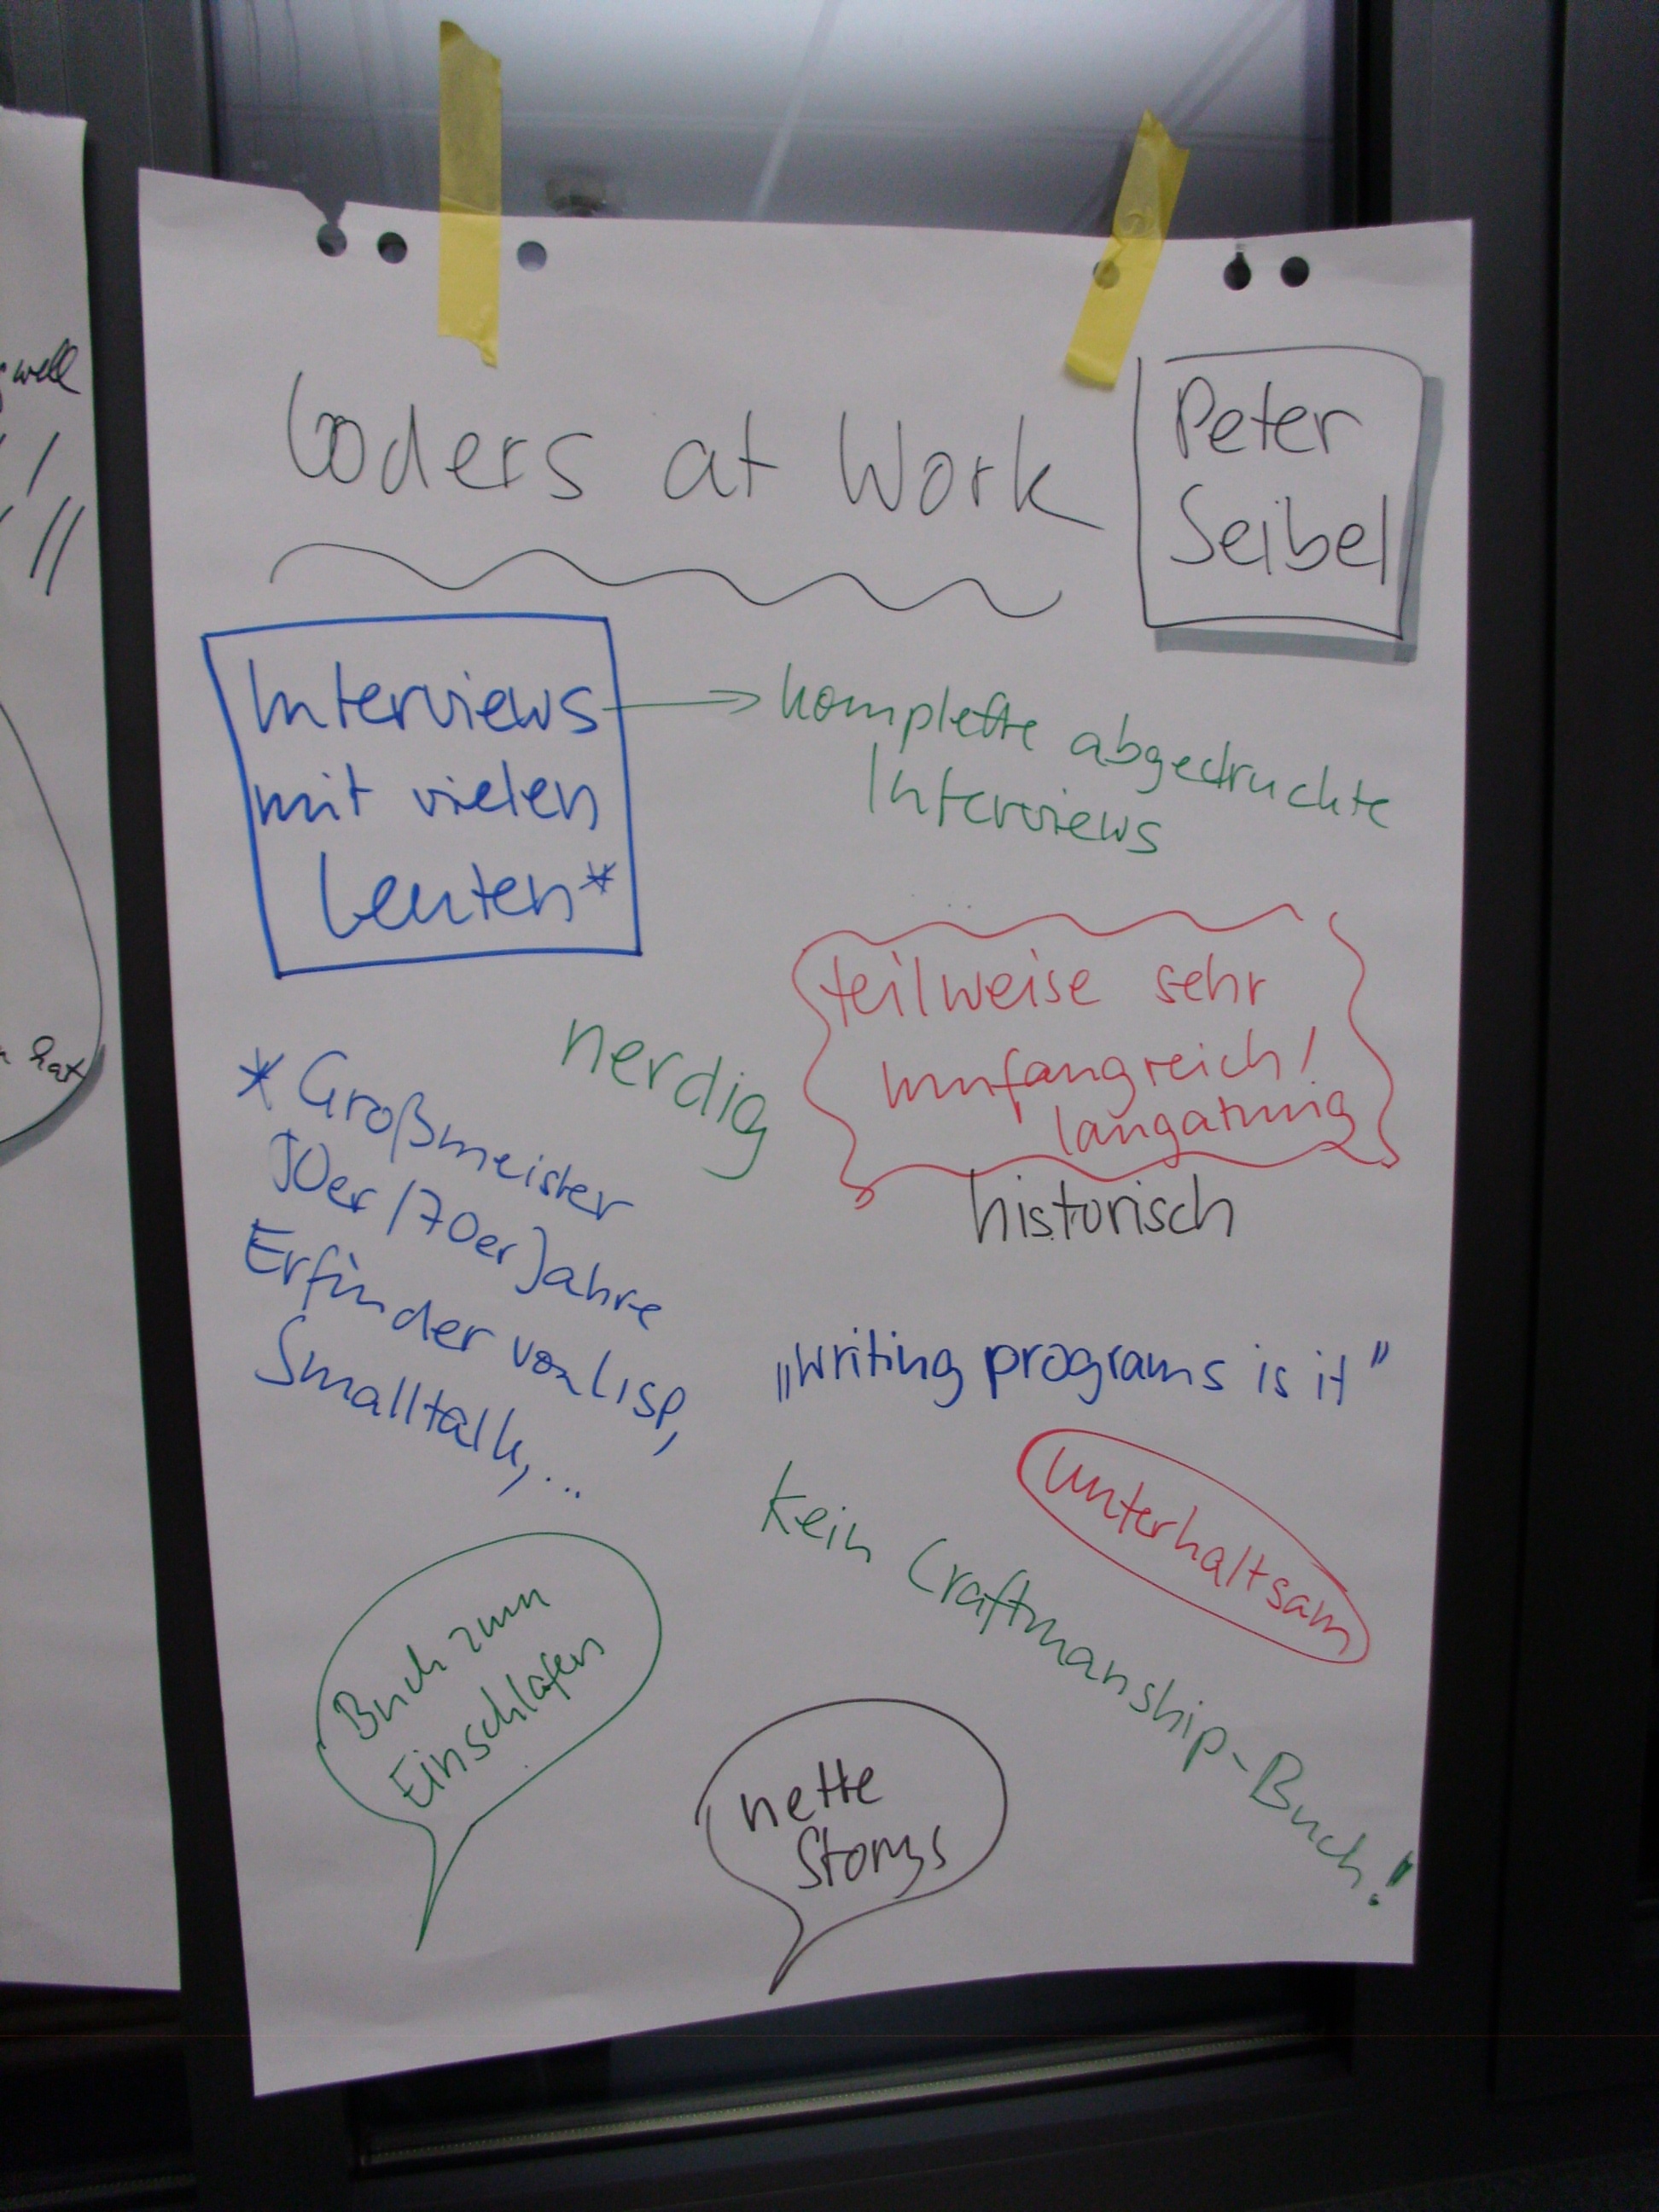 well
hat
Coders at Work
Peter
Seibel
Interviews
mit vielen
Leuten*
komplette abgedruckte
Interviews
teilweise sehr
umfangreich!
langatmig
nerdig
historisch
* Großmeister
50er/70er Jahre
Erfinder von Lisp,
Smalltalk, ...
„Writing programs is it"
Unterhaltsam
kein Craftmanship-Buch!
Buch zum
Einschlafen
nette
Storys